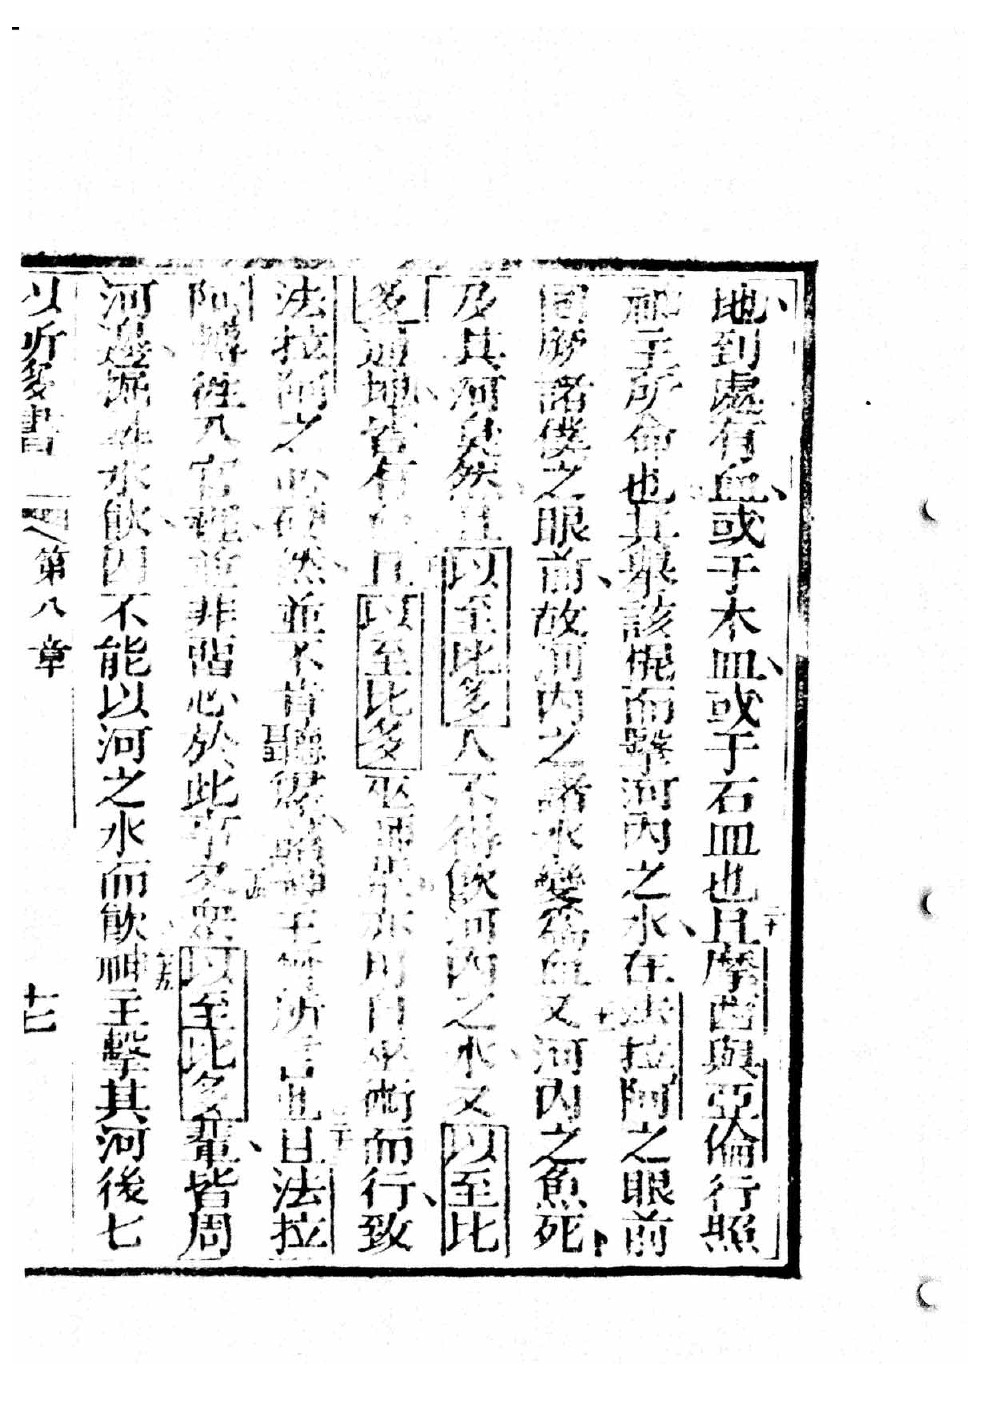 地到處有血或于木皿或于石皿也二十且摩西與亞倫行照
神主所命也其舉該棍而擊河內之水在法拉阿之眼前
同厥諸僕之眼前故河內之諸水變為血又河內之魚死
及其河臭然且以至比多人不得飲河內之水又以至比
多通地皆有血且以至比多巫師輩亦用自巫術而行致
法拉阿之心硬然並不肯聽伊等照神主曾所言也且法拉
阿轉往入宮裡並非留心於此事又眾以至比多輩皆周
河邊掘井水飲因不能以河之水而飲神主擊其河後七
以所多書 第八章 十七